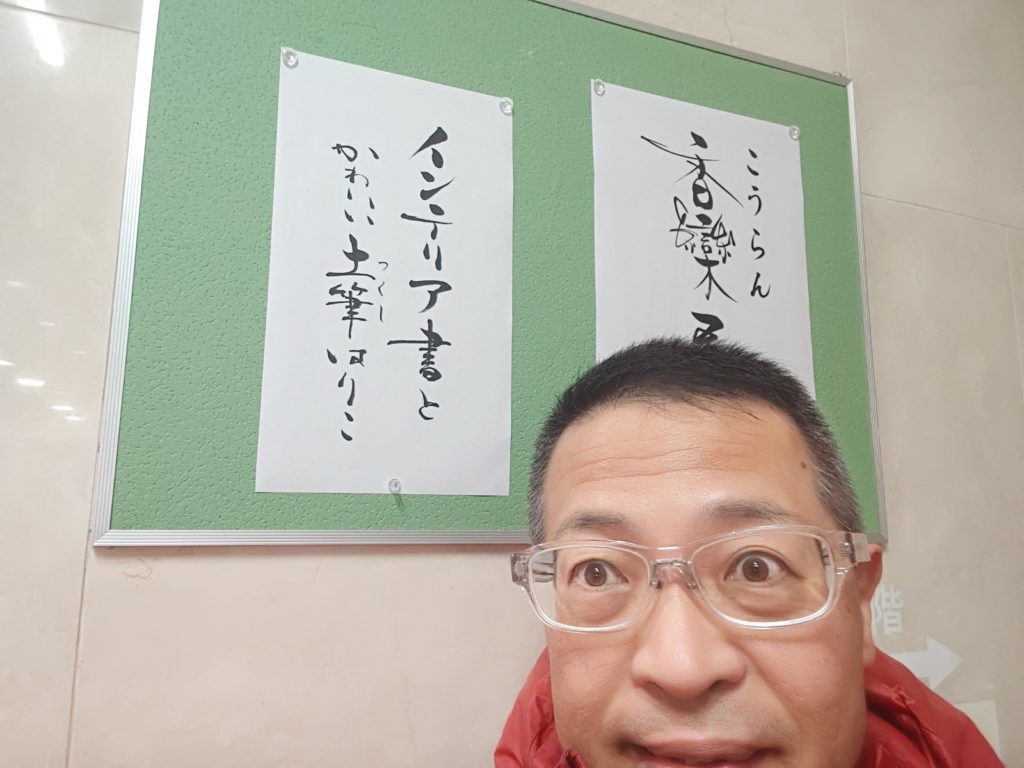 こうらん
香欒
インテリア書と
つくし
かわいい土筆はりこ
階